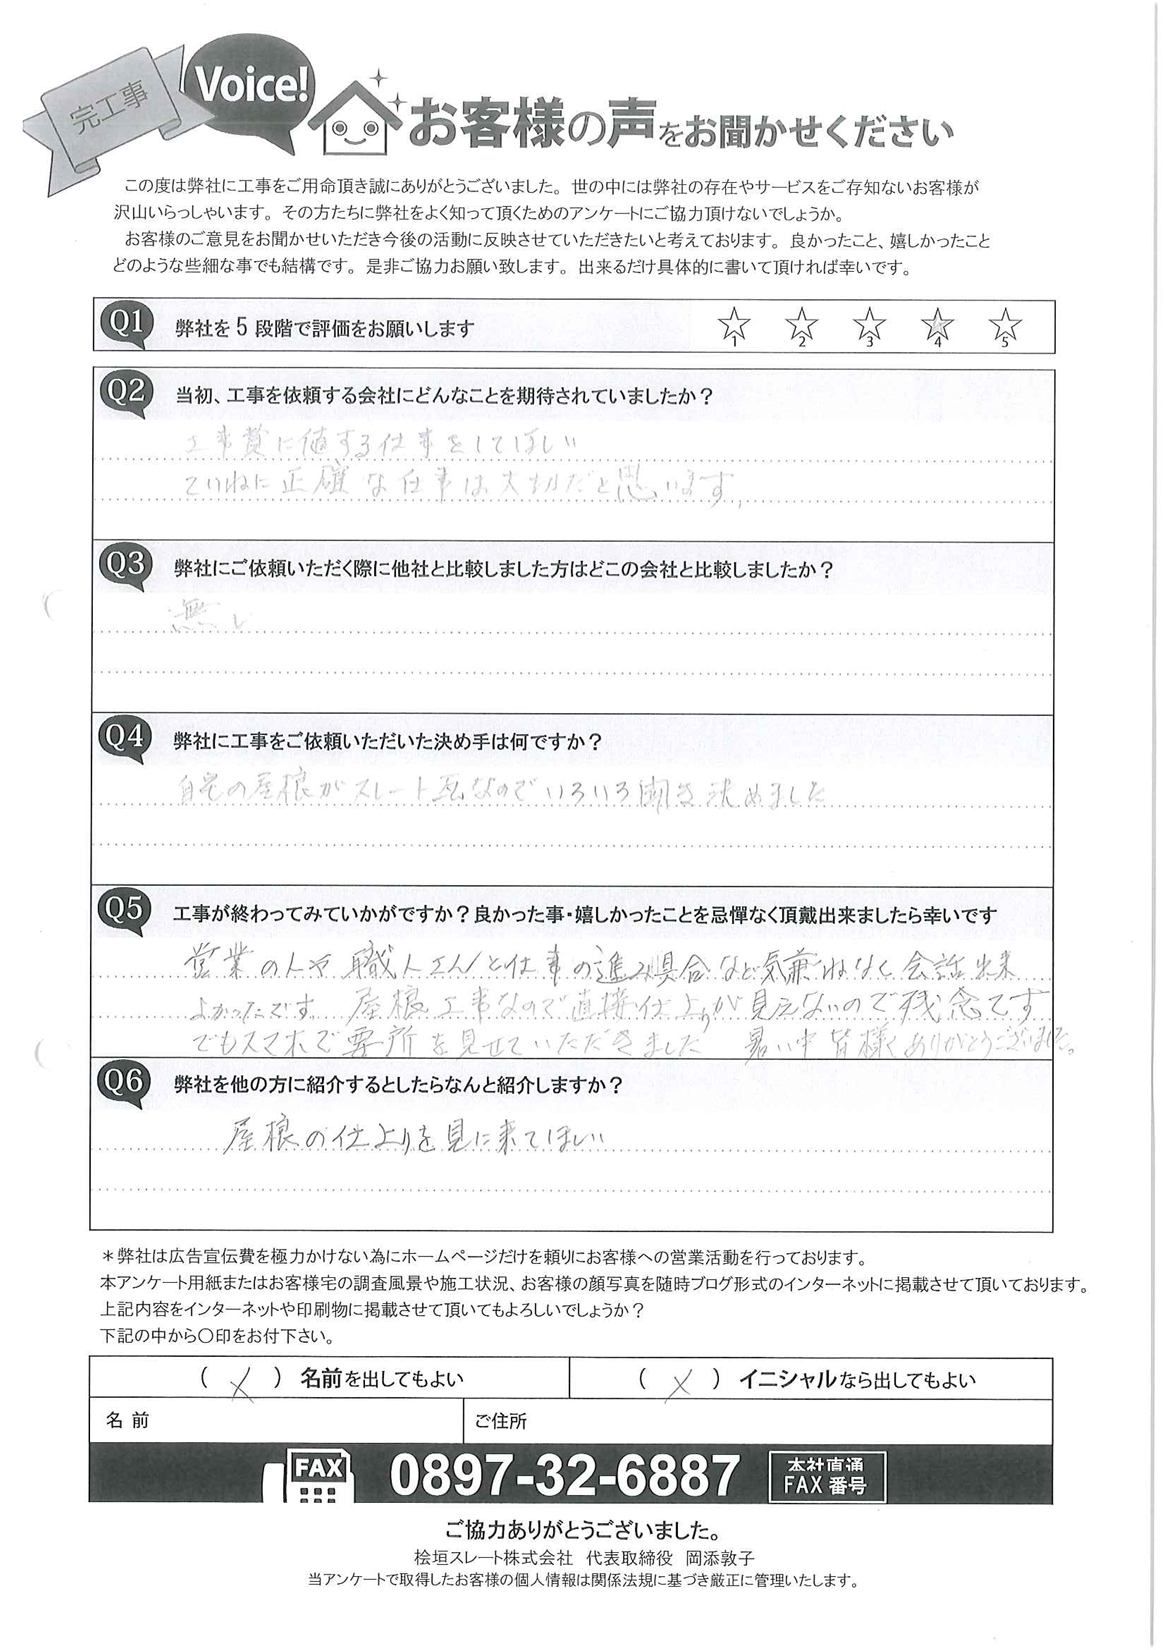 完工事
Voice!
お客様の声をお聞かせください
この度は弊社に工事をご用命頂き誠にありがとうございました。世の中には弊社の存在やサービスをご存知ないお客様が
沢山いらっしゃいます。その方たちに弊社をよく知って頂くためのアンケートにご協力頂けないでしょうか。
お客様のご意見をお聞かせいただき今後の活動に反映させていただきたいと考えております。良かったこと、嬉しかったこと
どのような些細な事でも結構です。是非ご協力お願い致します。出来るだけ具体的に書いて頂ければ幸いです。
Q1 弊社を5段階で評価をお願いします ☆1 ☆2 ☆3 ☆4 ☆5
Q2 当初、工事を依頼する会社にどんなことを期待されていましたか？
工事費に値する仕事をしてほしい
ていねいに正確な仕事は大切だと思います。
Q3 弊社にご依頼いただく際に他社と比較しました方はどこの会社と比較しましたか？
無し
Q4 弊社に工事をご依頼いただいた決め手は何ですか？
自宅の屋根がスレート瓦なのでいろいろ聞き決めました
Q5 工事が終わってみていかがですか？良かった事・嬉しかったことを忌憚なく頂戴出来ましたら幸いです
営業の人や職人さんと仕事の進み具合など気兼ねなく会話出来
よかったです。屋根工事なので直接仕上りが見えないので残念です
でもスマホで要所を見せていただきました 暑い中皆様ありがとうございました。
Q6 弊社を他の方に紹介するとしたらなんと紹介しますか？
屋根の仕上りを見に来てほしい
＊弊社は広告宣伝費を極力かけない為にホームページだけを頼りにお客様への営業活動を行っております。
本アンケート用紙またはお客様宅の調査風景や施工状況、お客様の顔写真を随時ブログ形式のインターネットに掲載させて頂いております。
上記内容をインターネットや印刷物に掲載させて頂いてもよろしいでしょうか？
下記の中から〇印をお付下さい。
（ × ）名前を出してもよい （ × ）イニシャルなら出してもよい
名 前 ご住所
FAX 0897-32-6887 本社直通
FAX 番号
ご協力ありがとうございました。
桧垣スレート株式会社 代表取締役 岡添敦子
当アンケートで取得したお客様の個人情報は関係法規に基づき厳正に管理いたします。